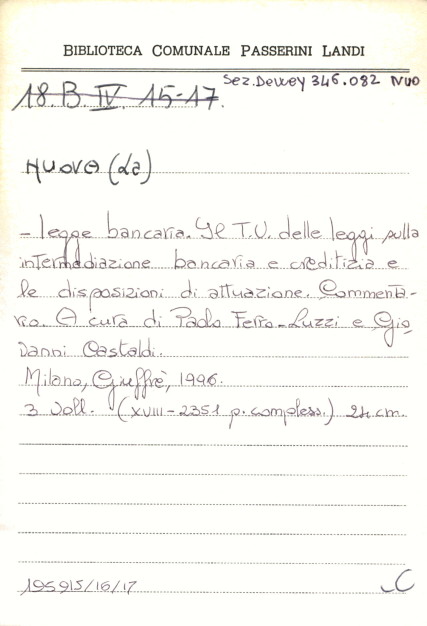 BIBLIOTECA COMUNALE PASSERINI LANDI
Sez. Dewey 346.082 NUO
18. B. IV. 15-17.
NUOVA (La)
- legge bancaria. Il T.U. delle leggi sulla
intermediazione bancaria e creditizia e
le disposizioni di attuazione. Commenta-
rio. A cura di Paolo Ferro-Luzzi e Gio
vanni Castaldi.
Milano, Giuffrè, 1996.
3 voll. (XVIII-2351 p. compless.) 24 cm.
195915/16/17